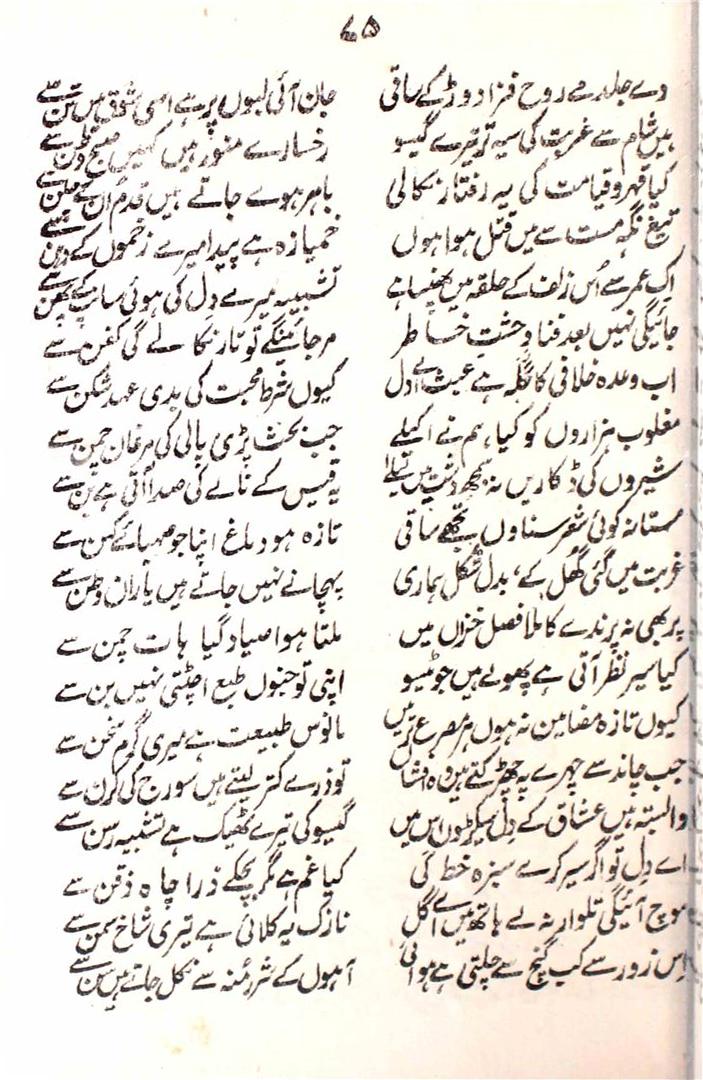 ۷۵
دے جلد مے روح فزا دوڑ کے ساقی جان آئی لبوں پر ہے اسی شوق میں تن سے
ہیں شام سے غربت کی سیہ تر ترے گیسو رخسارے منور ہیں کہیں صبح وطن سے
کیا قہر و قیامت کی یہ رفتار نکالی باہر ہوے جاتے ہیں قدم ان کے چلن سے
تیغ نگہ مست سے میں قتل ہوا ہوں خمیازہ ہے پیدا میرے زخموں کے دہن سے
اک عمر سے اُس زلف کے حلقہ میں پھنسا ہے تشبیہ میرے دل کی ہوئی سانپ کے پھن سے
جائیگی نہیں بعد فنا وحشت خاطر مر جائینگے تو تار نکالے گی کفن سے
اب وعدہ خلافی کا گلہ ہے عبث اے دل کیوں شرط محبت کی بدی عہد شکن سے
مغلوب ہزاروں کو کیا، ہم نے اکیلے جب بحث پڑی بالی کی مرغان چمن سے
شیروں کی ڈکاریں نہ سمجھ دشت میں لیلےٰ یہ قیس کے نالے کی صدا آتی ہے بن سے
مستانہ کوئی شعر سناوں تجھے ساقی تازہ ہو دماغ اپنا جو صہبائے کہن سے
غربت میں گئی گھُل کے، بدل شکل ہماری پہچانے نہیں جاتے ہیں یاران وطن سے
پر بھی نہ پرندے کا ملا فصل خزاں میں ملتا ہوا صیاد گیا ہات چمن سے
کیا سیر نظر آتی ہے پھولے ہیں جو ٹیسو اپنی تو جنوں طبع اچٹتی نہیں بن سے
کیوں تازہ مضامین نہ ہوں ہر مصرع تر میں مانوس طبیعت ہے میری گرم سخن سے
جب چاند سے چہرے پہ چھڑکتے ہیں وہ افشاں تو ذرے کتر لیتے ہیں سورج کی کرن سے
وابستہ ہیں عشاق کے دل سیکڑوں اس میں گیسو کی تیرے ٹھیک ہے تشبیہ رسن سے
اے دل تو اگر سیر کرے سبزہ خط کی کیا غم ہے مگر بچکے ذرا چاہ ذقن سے
موچ آئیگی تلوار نہ لے ہاتھ میں اے گل نازک یہ کلائی ہے تیری شاخ سمن سے
اِس زور سے کب گنج سے چلتی ہے ہوائی آہوں کے شرر مُنہ سے نکل جاتے ہیں سن سے